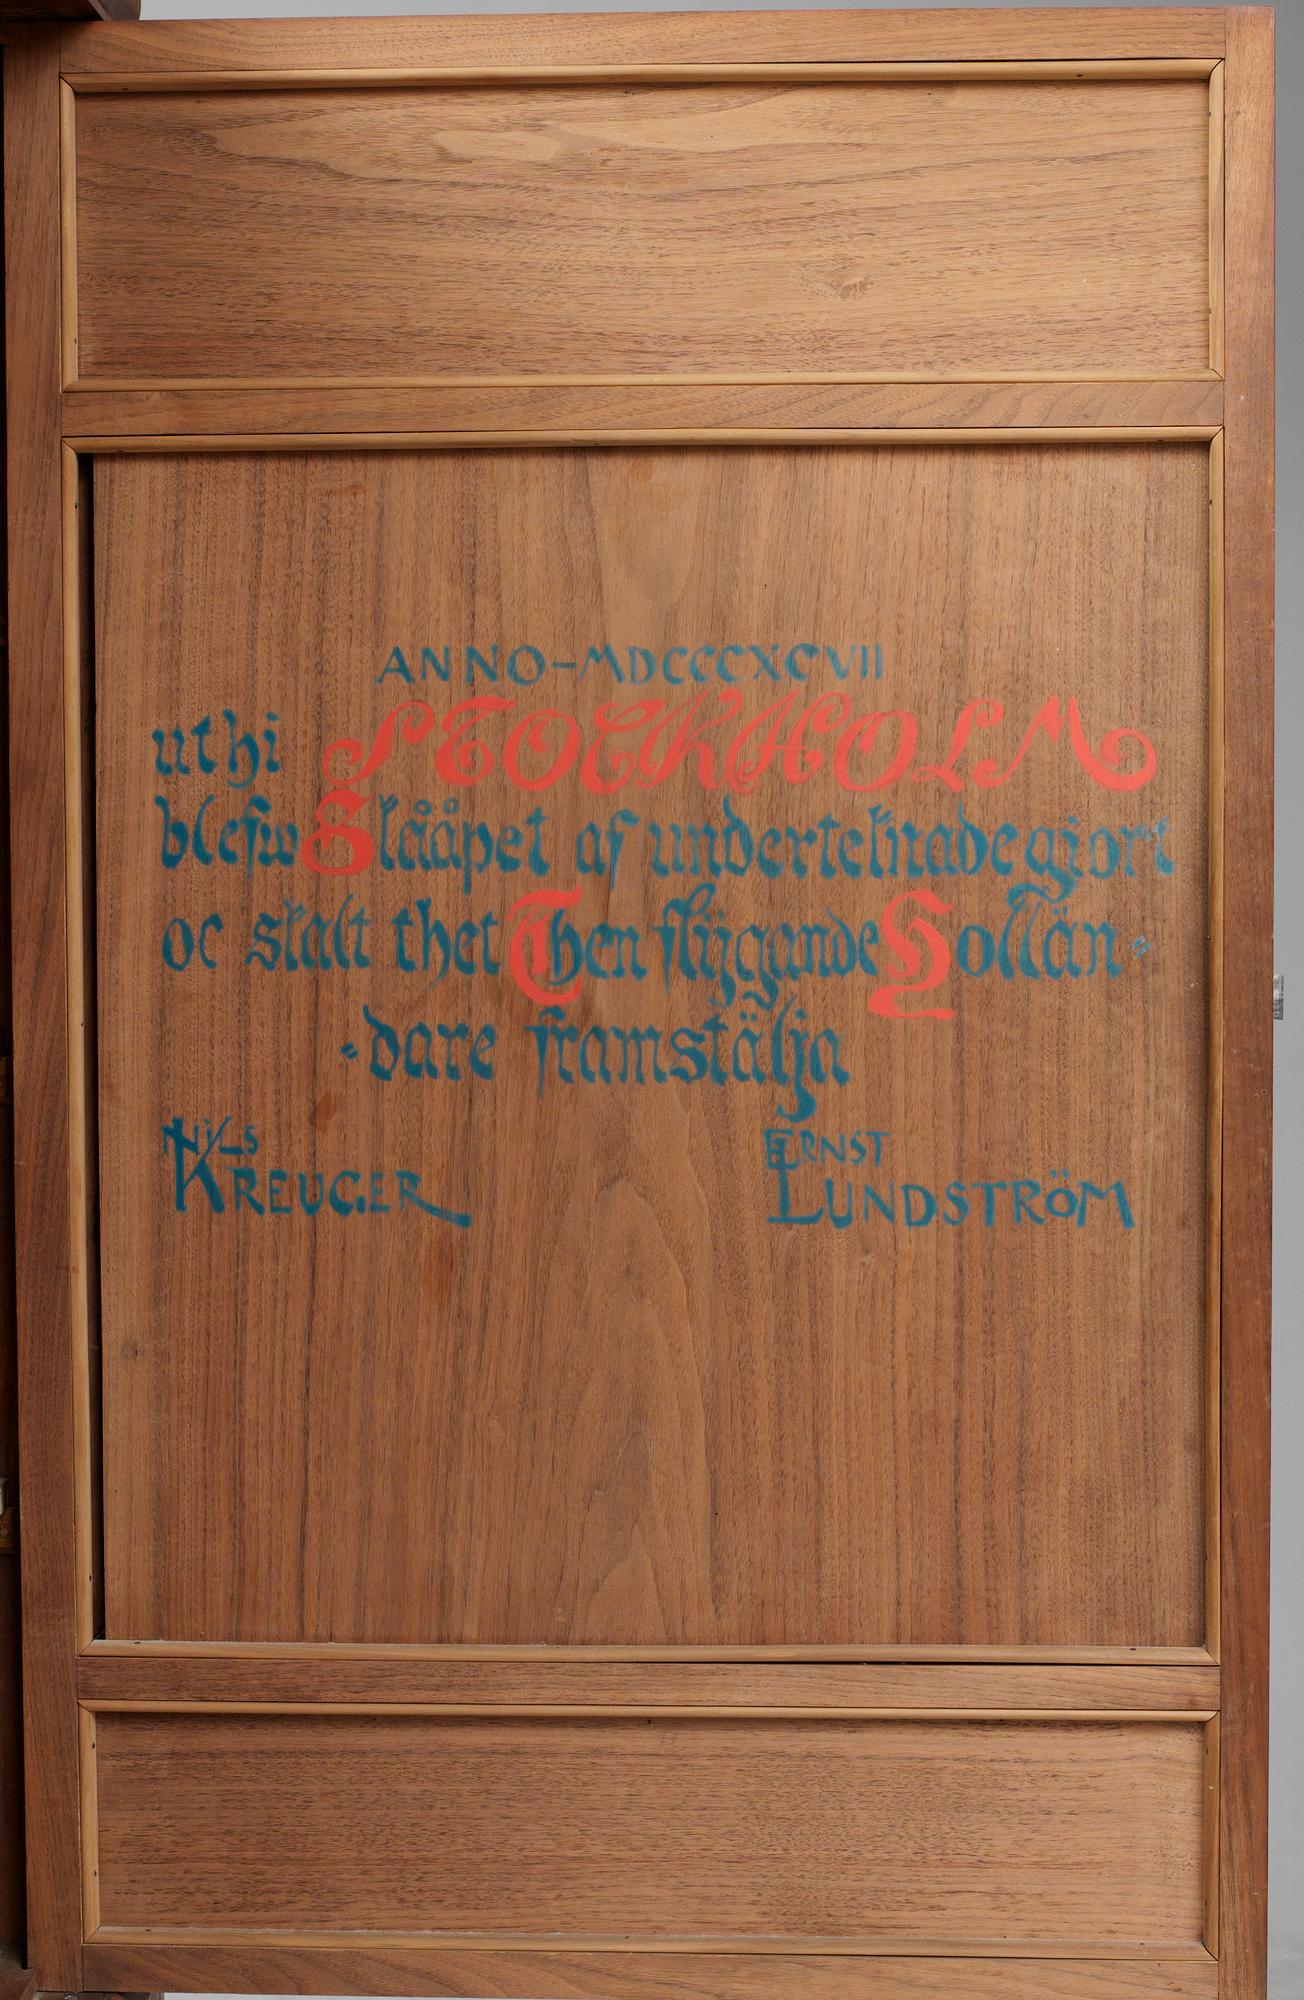 ANNO-MDCCCXCVII
uthi STOCKHOLM
blefw Skååpet af underteknade giort
oc skalt thet Then flÿgande Hollän=
=dare framstälja
NiLS KREUGER
ERNST LUNDSTRÖM